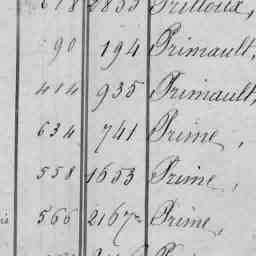 678 2853 Prilloux,
90 194 Primault,
414 935 Primault,
634 741 Prime,
558 1653 Prime,
566 2167 Prime,